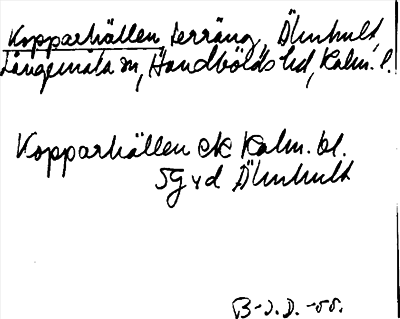 Kopparhällen, terräng, Älmhult,
Långemåla sn, Handbölds hd, Kalm. l.
Kopparhällen ek Kalm. bl.
5G v d Älmhult
B-J.D. -55.